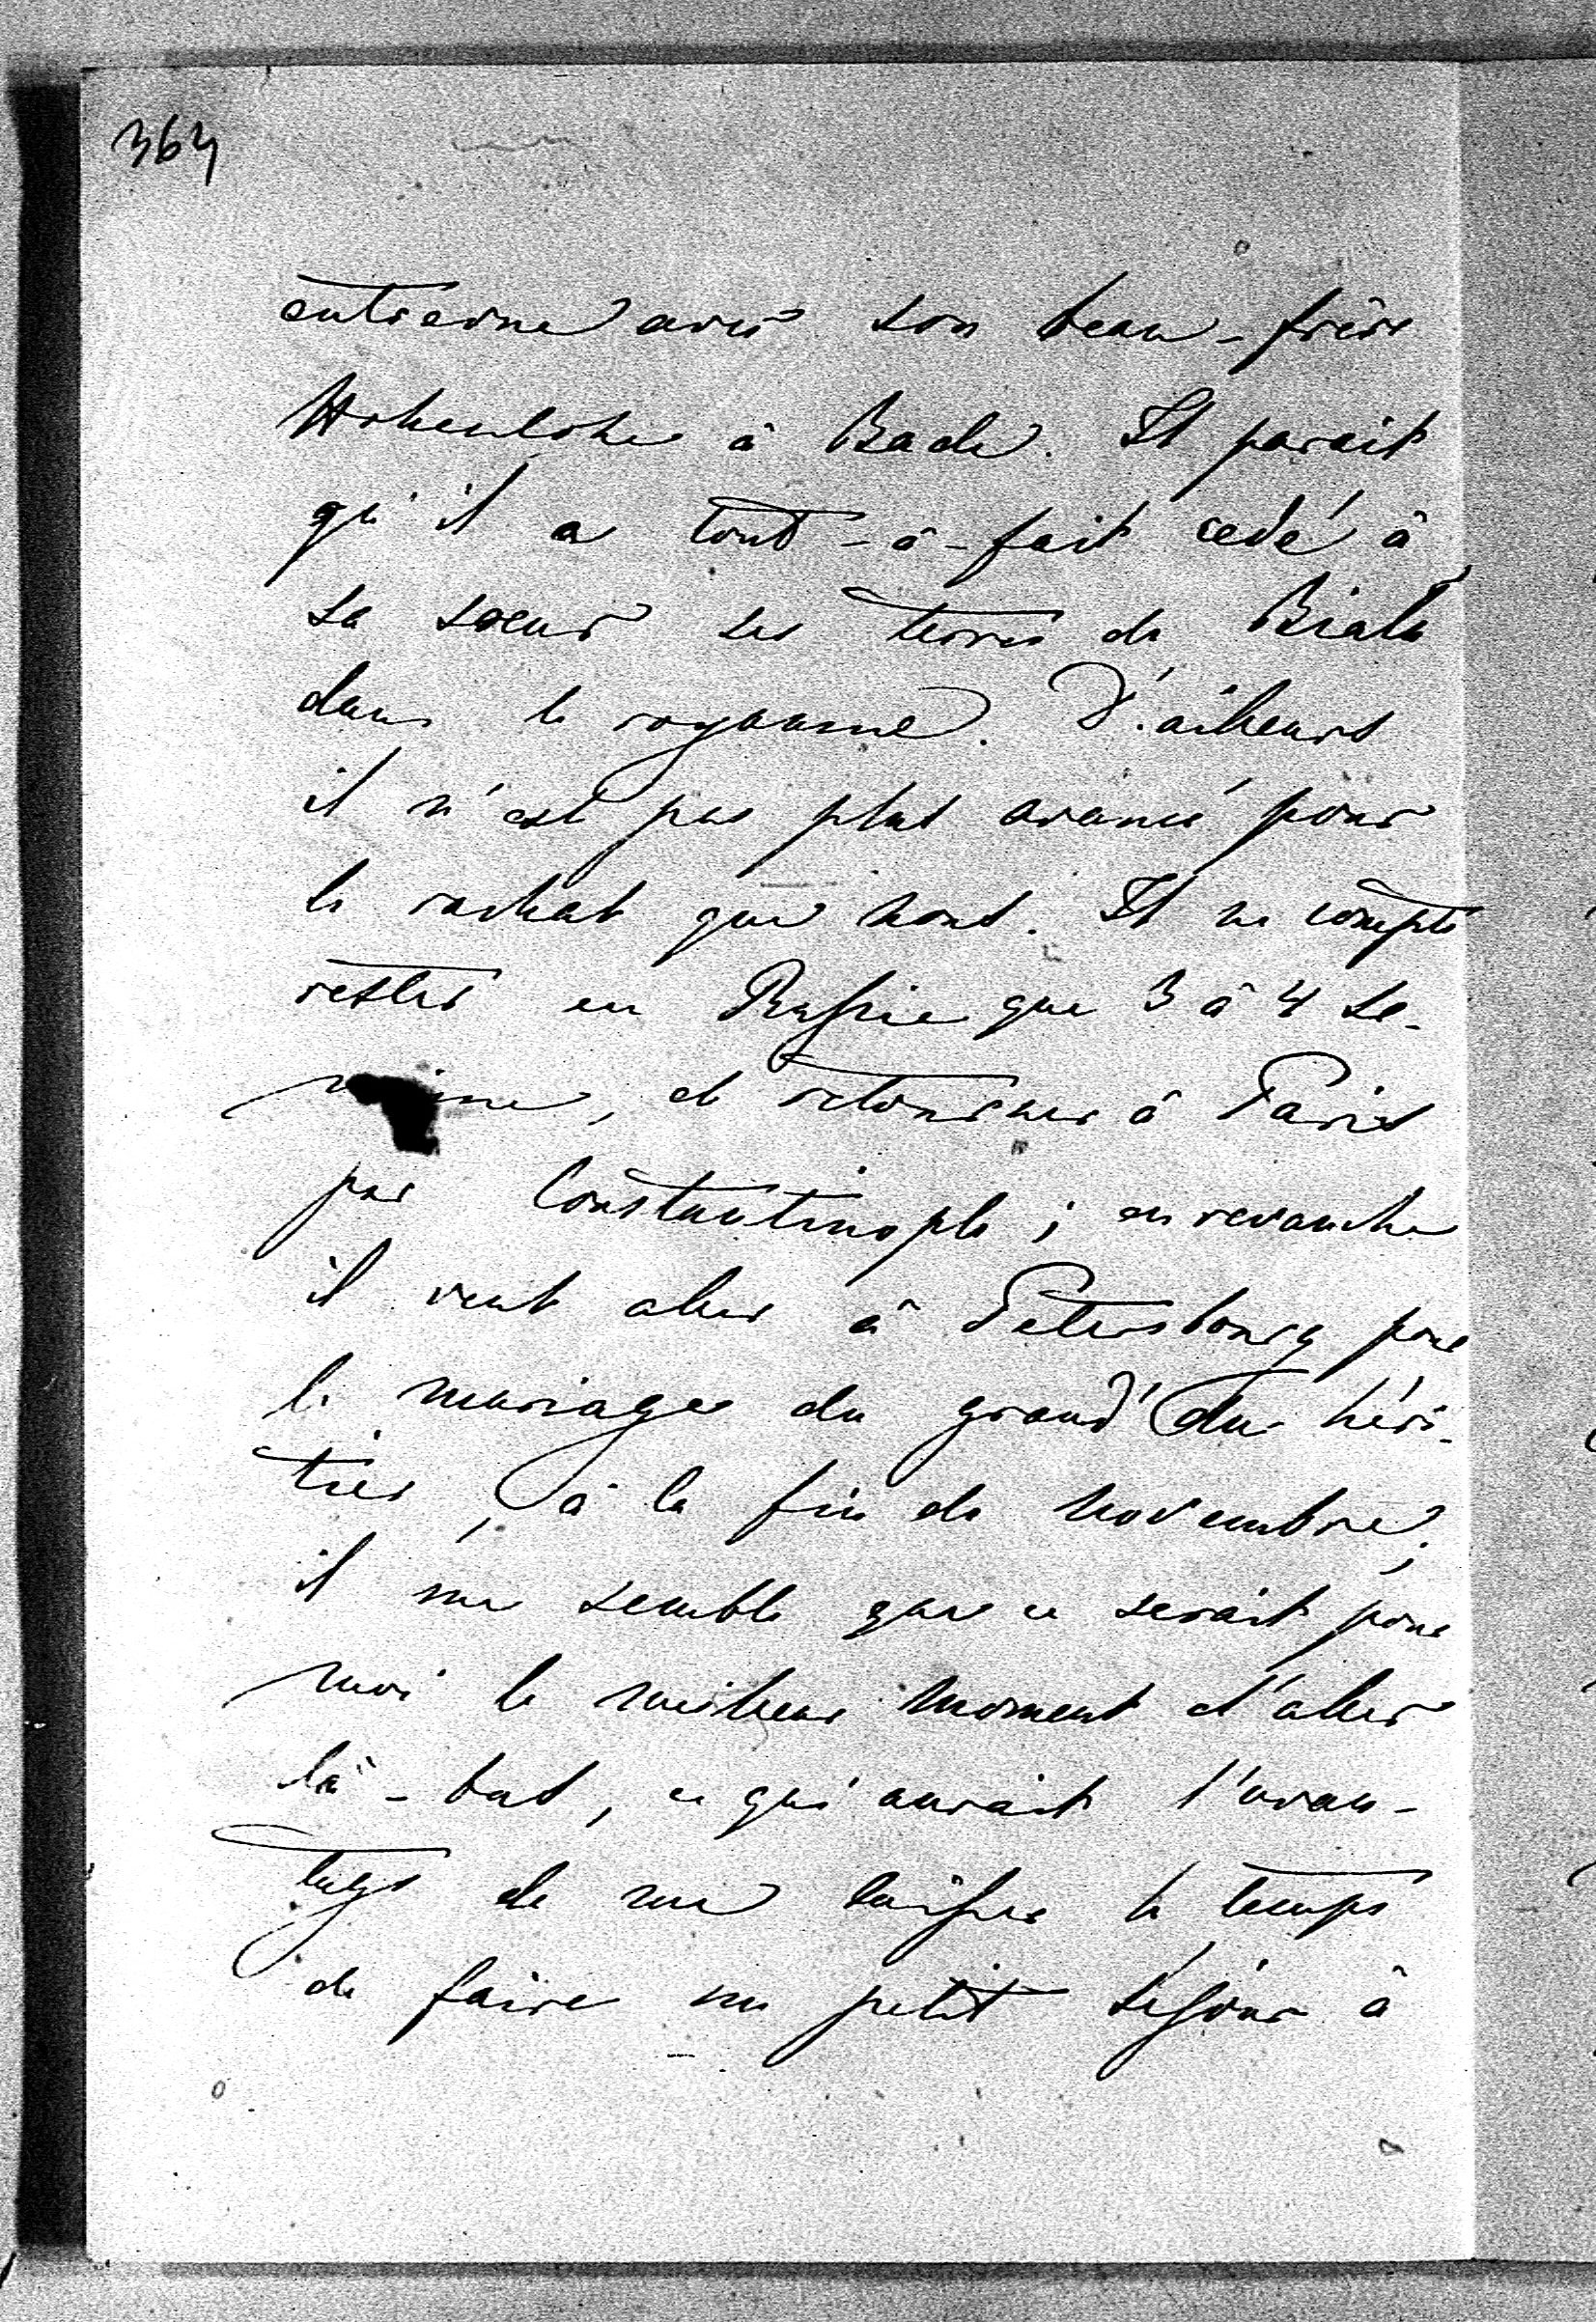 364
entrevue avec son beau-frère
Hohenlohe à Bade. Il parait
qu'il a tout-à-fait cedé à
sa soeur ses terres de Biala
dans le royaume. D'ailleurs
il n'est pas plus avancé pour
le rachat que nous. Il ne compte
rester en Russie que 3 à 4 se-
maine, et retourner à Paris
par Constantinople ; en revanche
il veut aller à Pétersbourg pour
le mariage du grand duc héri-
tier, à la fin de novembre ;
il me semble que ce serait pour
moi le meilleur moment d'aller
là-bas, ce qui aurait l'avan-
tage de me laisser le temps
de faire un petit séjour à